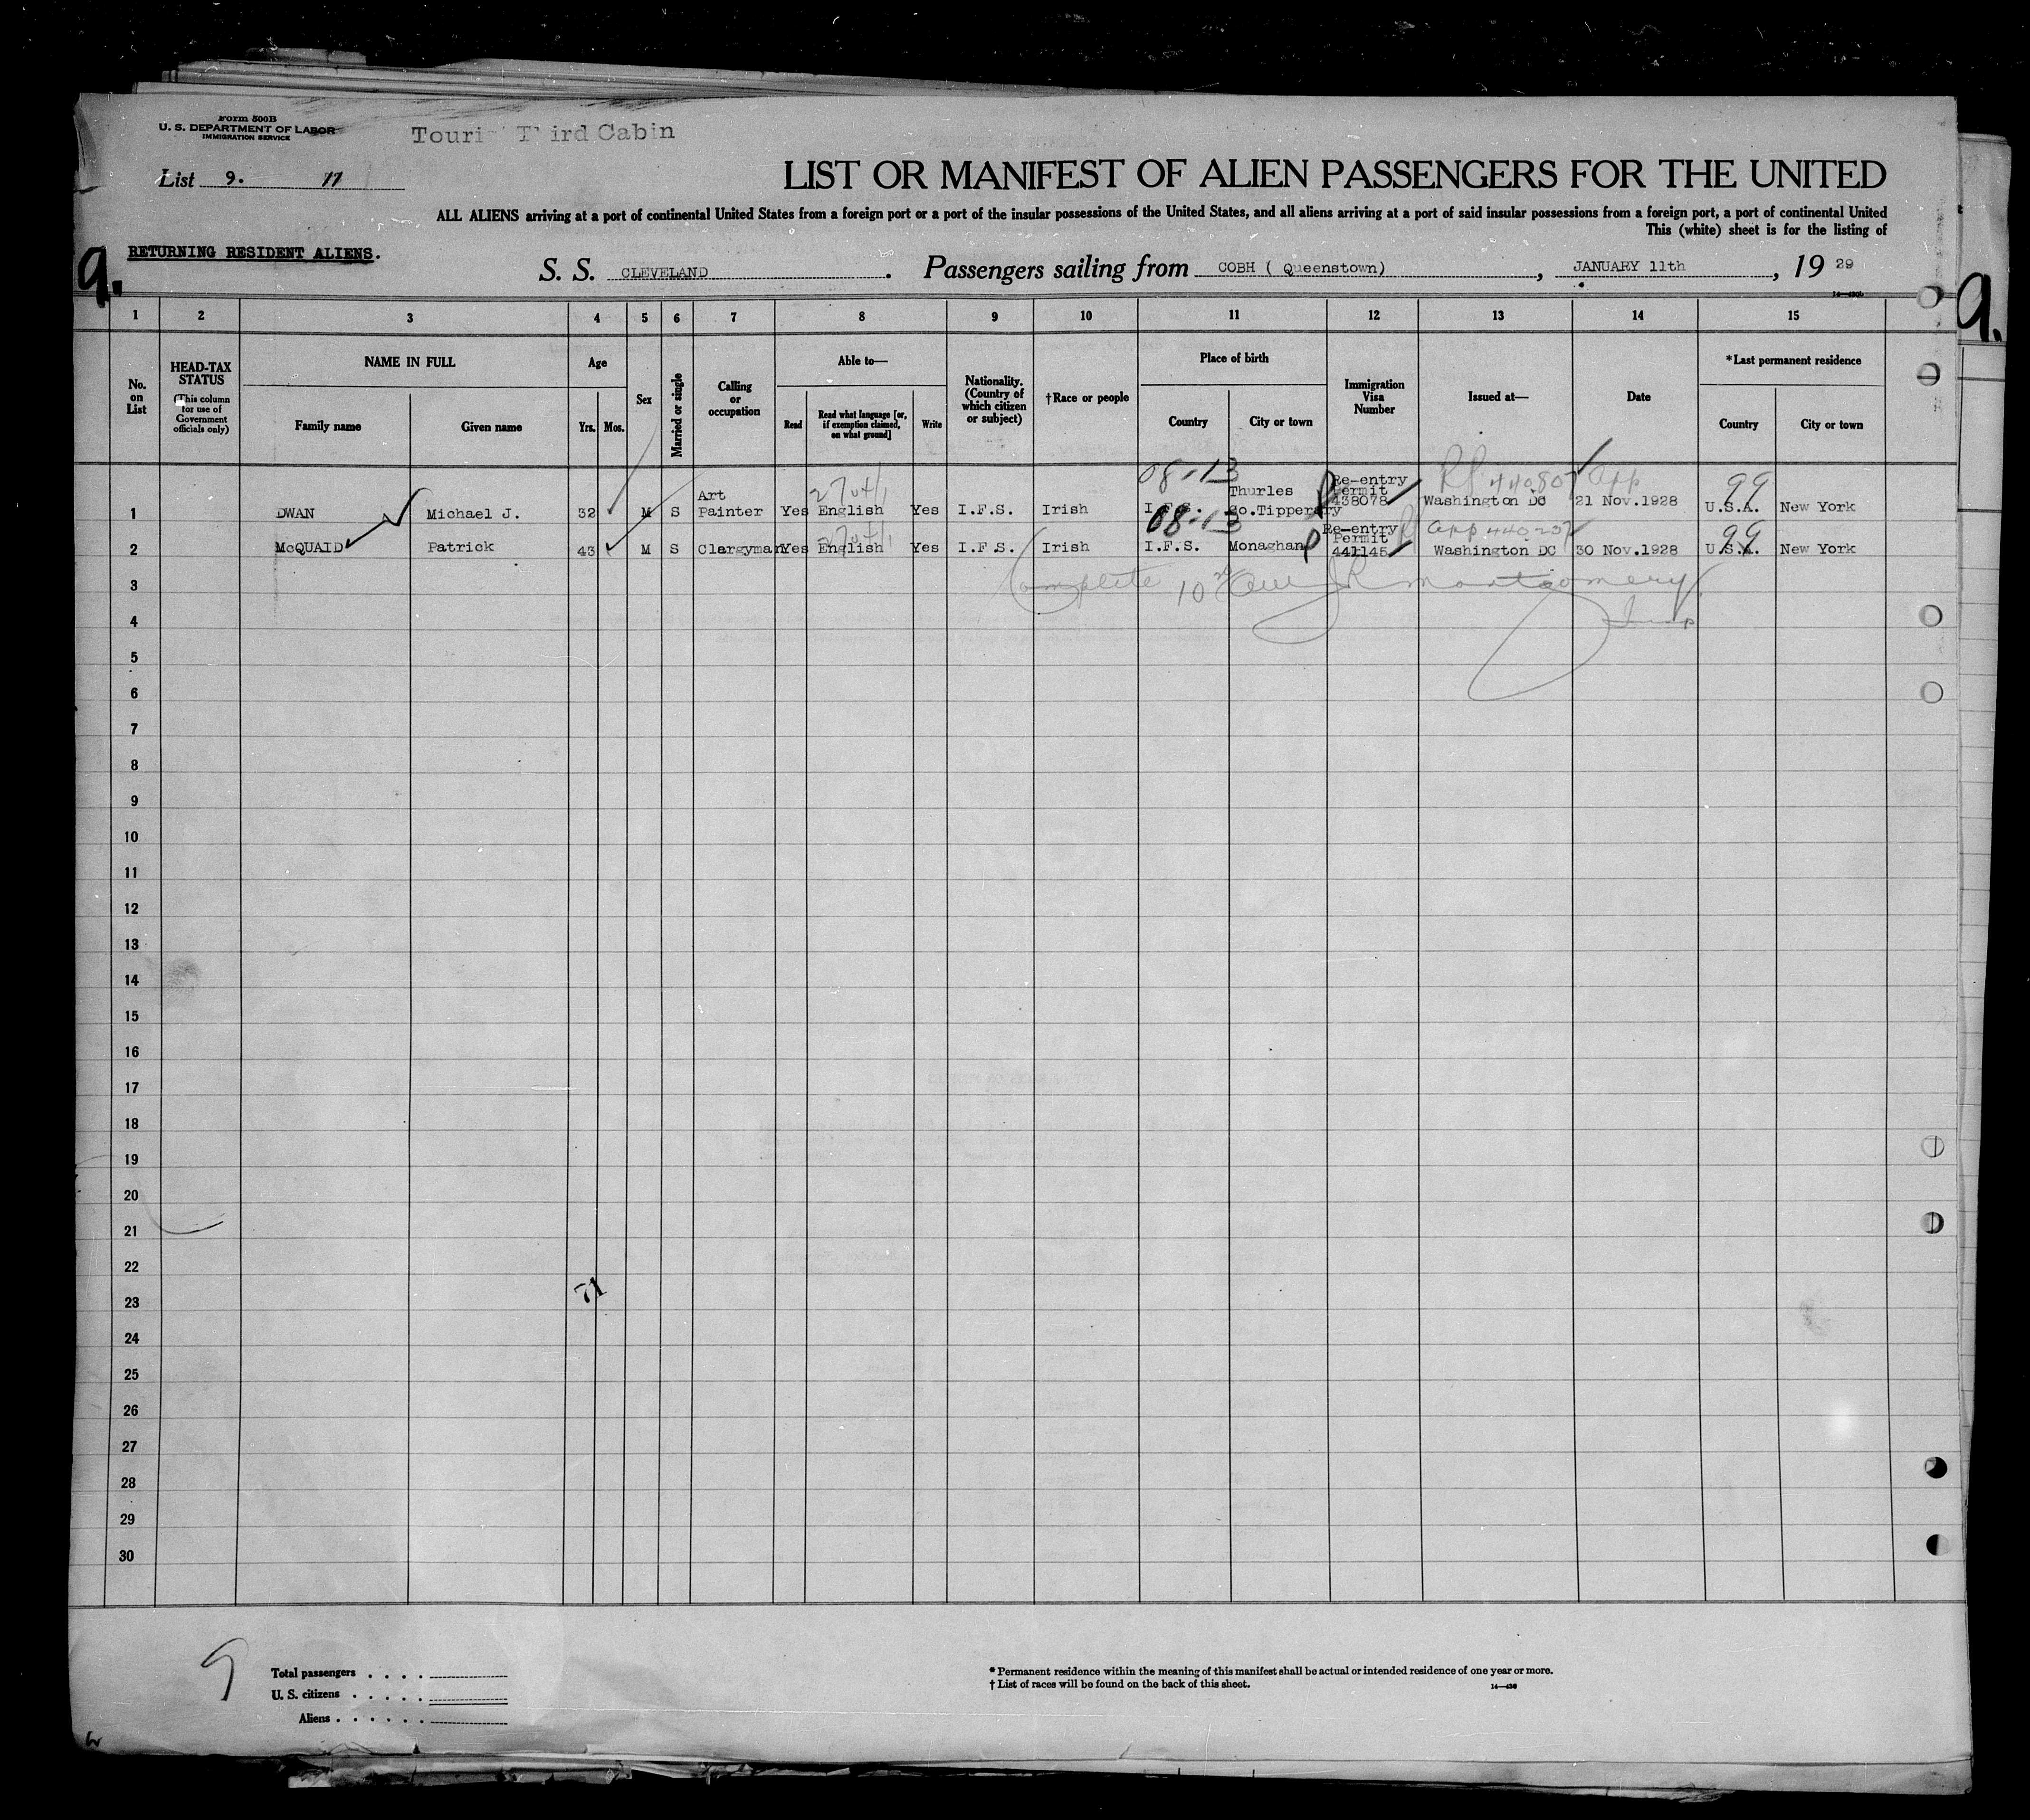 Form 500B
U. S. DEPARTMENT OF LABOR
IMMIGRATION SERVICE
Third Cabin
List 9. 11
LIST OR MANIFEST OF ALIEN PASSENGERS FOR THE UNITED
ALL ALIENS arriving at a port of continental United States from a foreign port or a port of the insular possessions of the United States, and all aliens arriving at a port of said insular possessions from a foreign port, a port of continental United
This (white) sheet is for the listing of
RETURNING RESIDENT ALIENS.
9. S. S. CLEVELAND. Passengers sailing from COBH ( Queenstown), JANUARY 11th, 19 29
9.
1 2 3 4 5 6 7 8 9 10 11 12 13 14 15
No. on List
HEAD-TAX STATUS
(This column for use of Government officials only)
NAME IN FULL
Family name Given name
Age
Yrs. Mos.
Sex
Married or single
Calling or occupation
Able to—
Read Read what language [or, if exemption claimed, on what ground] Write
Nationality. (Country of which citizen or subject)
†Race or people
Place of birth
Country City or town
Immigration Visa Number
Issued at—
Date
*Last permanent residence
Country City or town
08-13 440807 app 99
1 DWAN Michael J. 32 M S Art Painter Yes English Yes I.F.S. Irish I.F.S. Thurles Co.Tipperary Re-entry Permit 438078 Washington DC 21 Nov.1928 U.S.A. New York
08-13 app 99
2 McQUAID Patrick 43 M S Clergyman Yes English Yes I.F.S. Irish I.F.S. Monaghan Re-entry Permit 441145 Washington DC 30 Nov.1928 U.S.A. New York
3 Complete Montgomery
4 Insp
5
6
7
8
9
10
11
12
13
14
15
16
17
18
19
20
21
22
23 71
24
25
26
27
28
29
30
9
Total passengers . . . .
U. S. citizens . . . . .
Aliens . . . . . .
* Permanent residence within the meaning of this manifest shall be actual or intended residence of one year or more.
† List of races will be found on the back of this sheet.